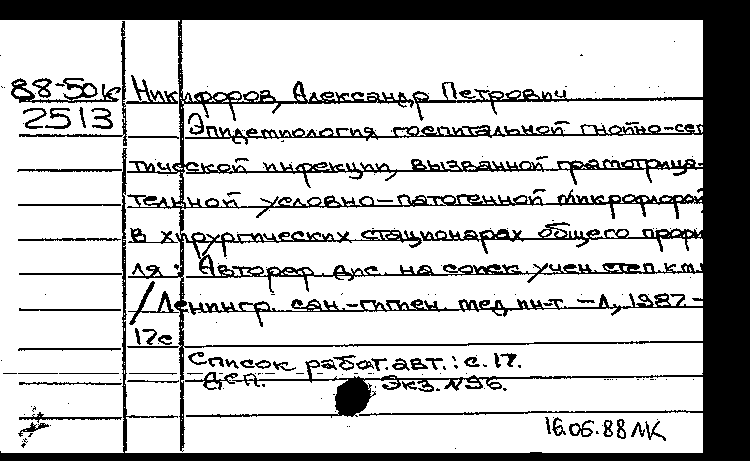 88-50к Никифоров, Александр Петрович
2513 Эпидемиология госпитальной гнойно-сеп
тической инфекции, вызванной грамотрица-
тельной условно-патогенной микрофлорой
в хирургических стационарах общего профи
ля : Автореф. дис. на соиск. учен. степ. к.м.
/ Ленингр. сан.-гигиен. мед. ин-т. - Л., 1987 -
17с
Список работ. авт.: с. 17.
ДСП. Экз. №96.
16.06.88 МК